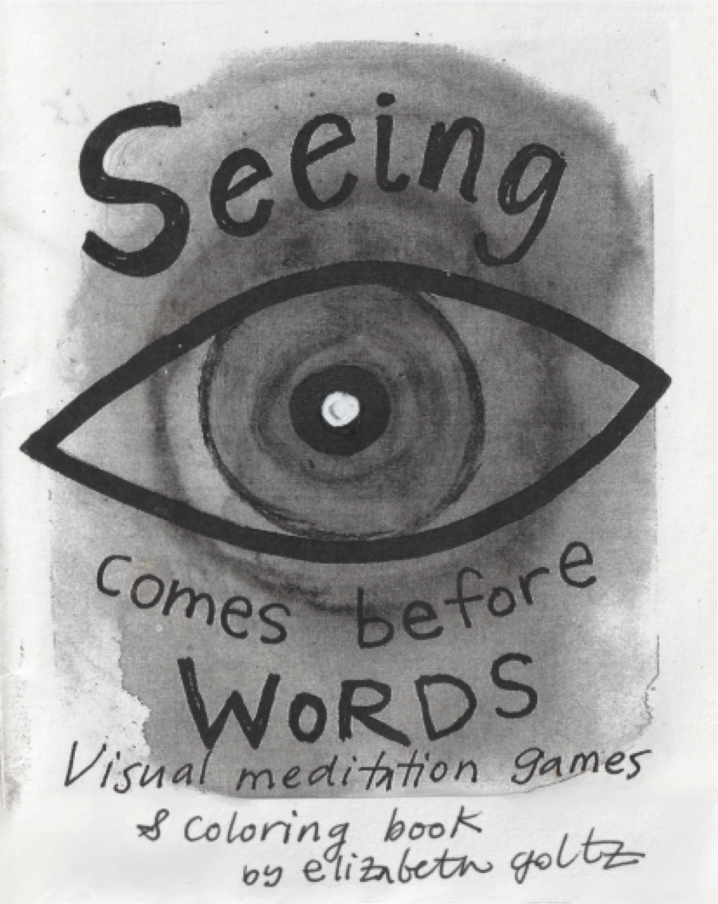 Seeing
comes before
WoRDS
Visual meditation games
& coloring book
by elizabeth goltz